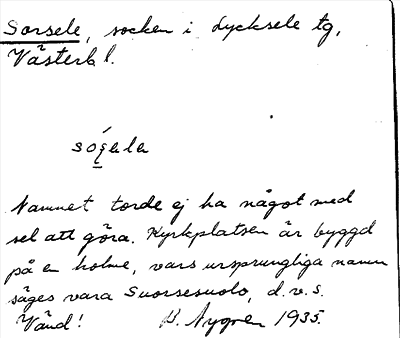 Sorsele, socken i Lycksele tg,
Västerb l.
Namnet torde ej ha något med
sel att göra. Kyrkplatsen är byggd
på en holme, vars ursprungliga namn
säges vara Suorsesuolo, d.v.s.
Vänd! B. Nygren 1935.